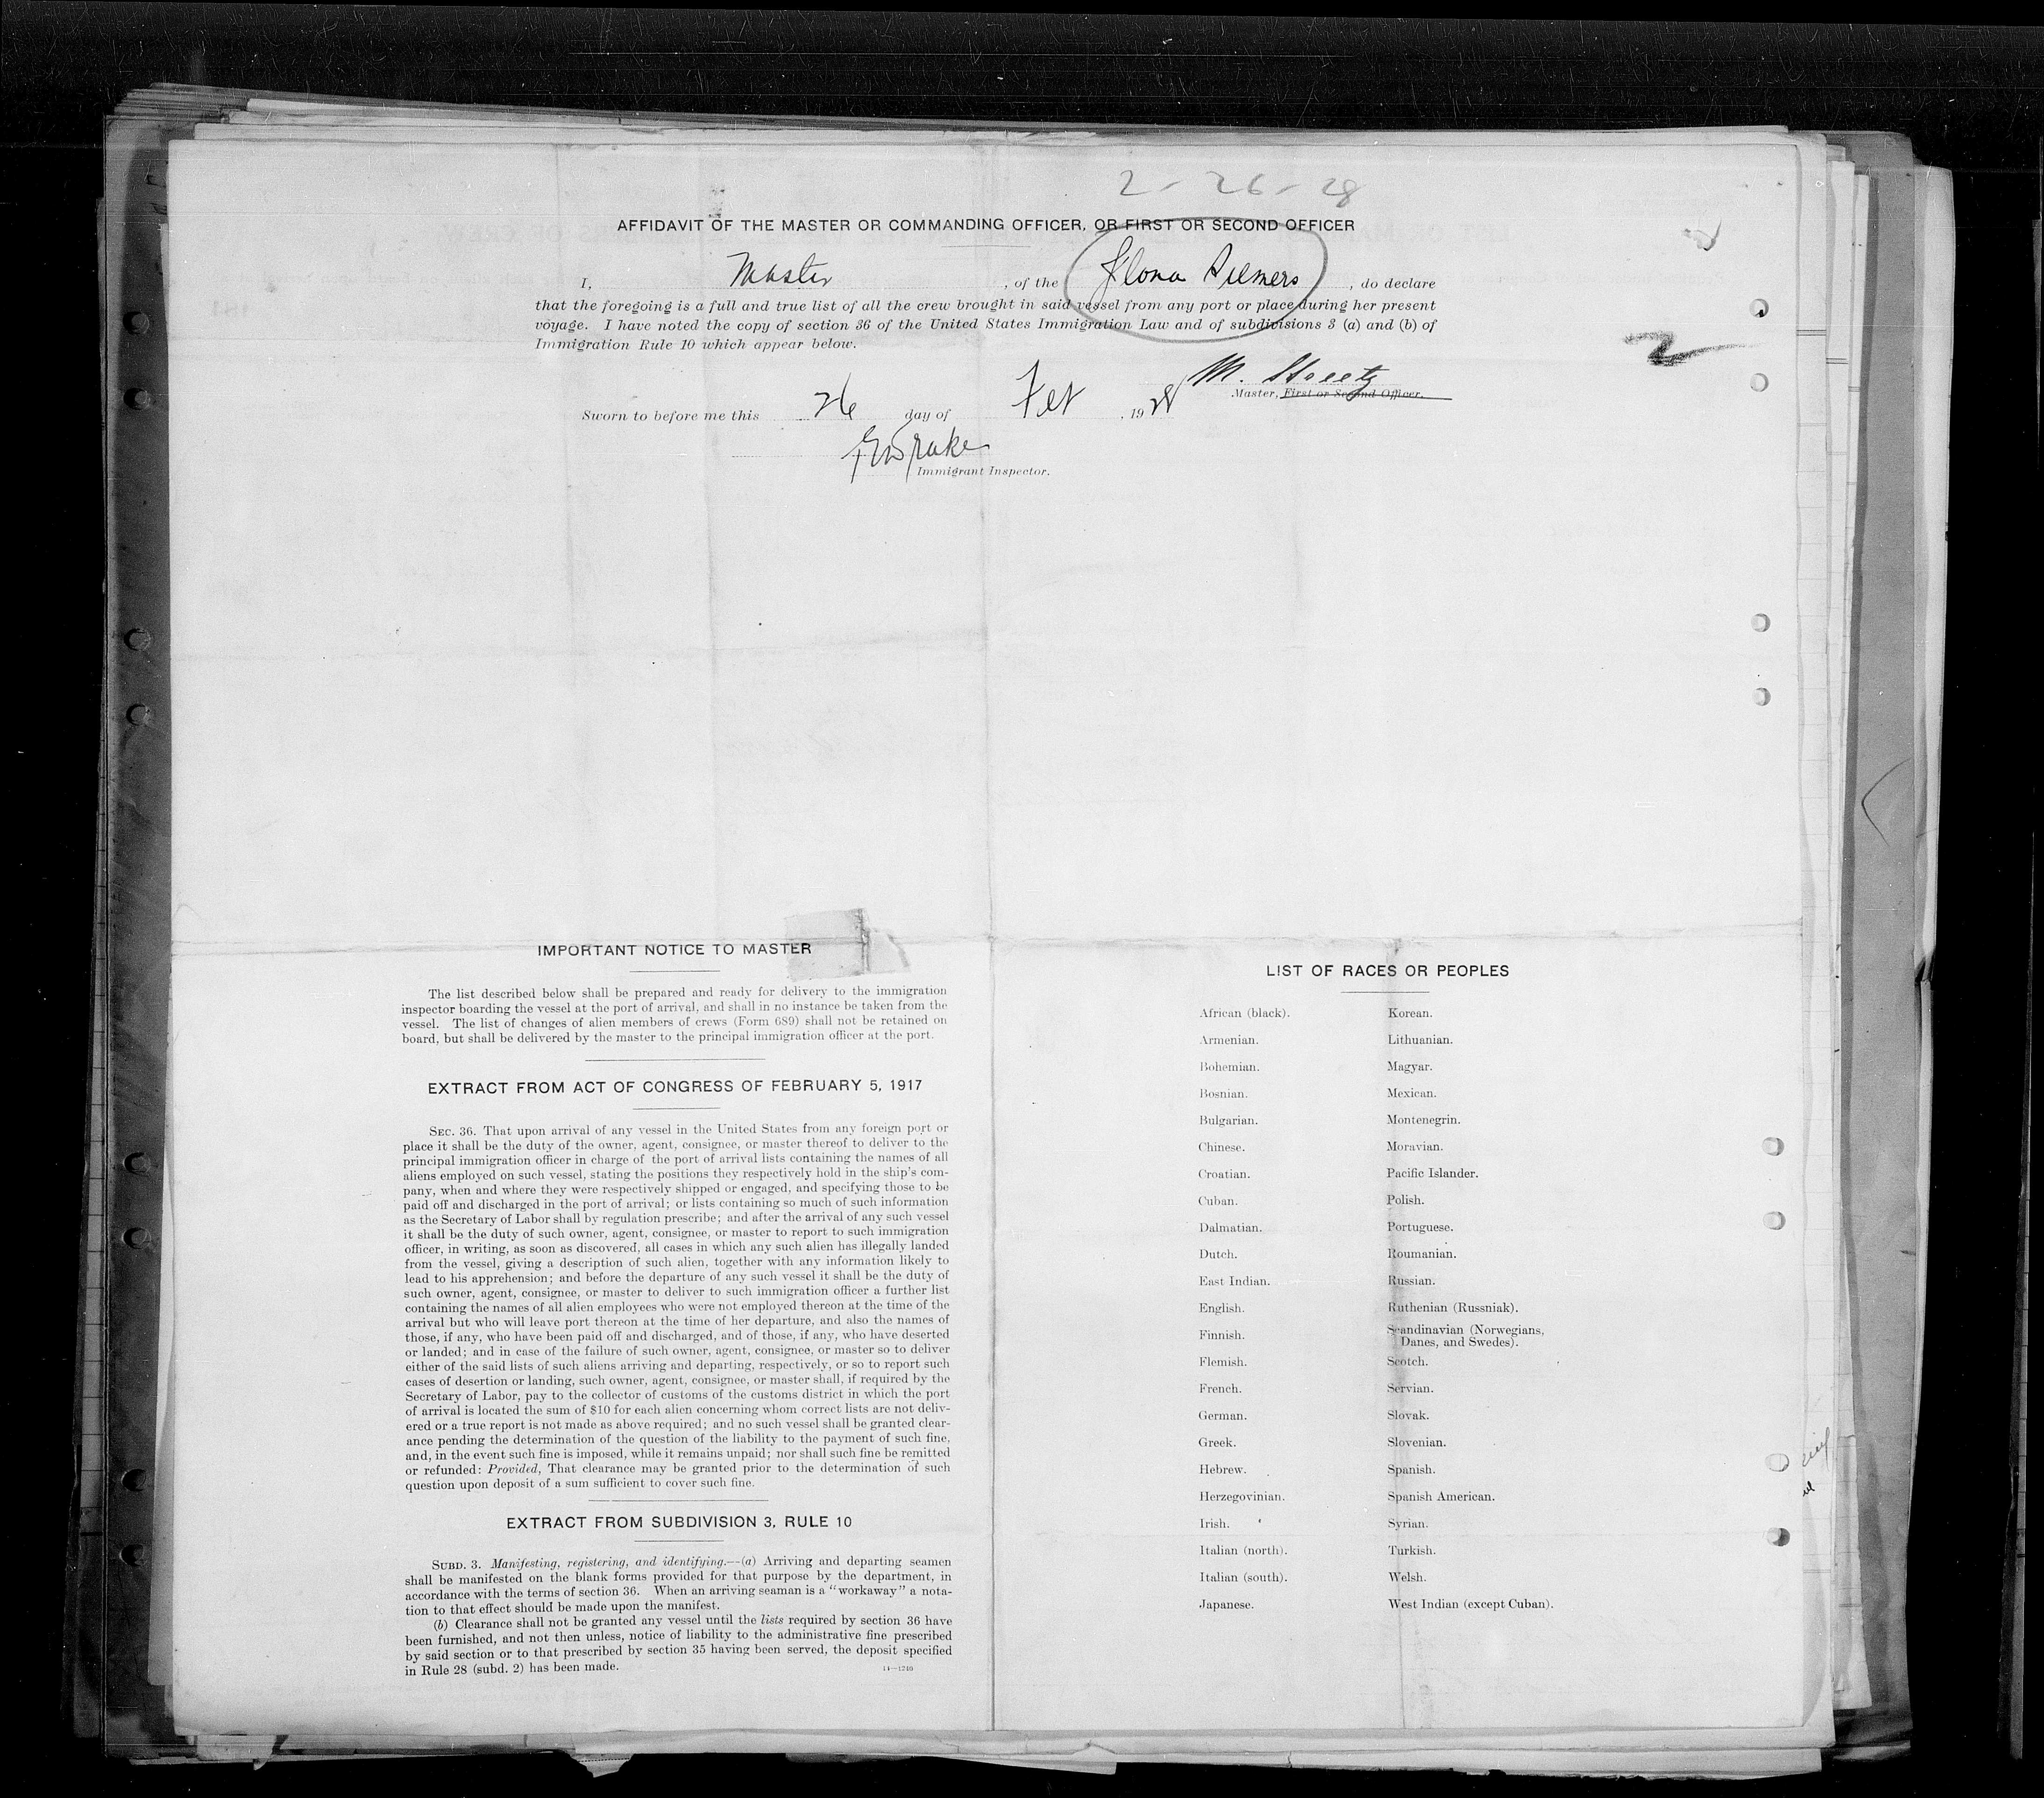 2-26-28
AFFIDAVIT OF THE MASTER OR COMMANDING OFFICER, OR FIRST OR SECOND OFFICER
I, Master, of the Ilona Siemers, do declare
that the foregoing is a full and true list of all the crew brought in said vessel from any port or place during her present
voyage. I have noted the copy of section 36 of the United States Immigration Law and of subdivisions 3 (a) and (b) of
Immigration Rule 10 which appear below.
2
M. Streetz
Master, First or Second Officer.
Sworn to before me this 26 day of Feb, 1928
Drake
Immigrant Inspector.
IMPORTANT NOTICE TO MASTER
The list described below shall be prepared and ready for delivery to the immigration
inspector boarding the vessel at the port of arrival, and shall in no instance be taken from the
vessel. The list of changes of alien members of crews (Form 689) shall not be retained on
board, but shall be delivered by the master to the principal immigration officer at the port.
EXTRACT FROM ACT OF CONGRESS OF FEBRUARY 5, 1917
SEC. 36. That upon arrival of any vessel in the United States from any foreign port or
place it shall be the duty of the owner, agent, consignee, or master thereof to deliver to the
principal immigration officer in charge of the port of arrival lists containing the names of all
aliens employed on such vessel, stating the positions they respectively hold in the ship's com-
pany, when and where they were respectively shipped or engaged, and specifying those to be
paid off and discharged in the port of arrival; or lists containing so much of such information
as the Secretary of Labor shall by regulation prescribe; and after the arrival of any such vessel
it shall be the duty of such owner, agent, consignee, or master to report to such immigration
officer, in writing, as soon as discovered, all cases in which any such alien has illegally landed
from the vessel, giving a description of such alien, together with any information likely to
lead to his apprehension; and before the departure of any such vessel it shall be the duty of
such owner, agent, consignee, or master to deliver to such immigration officer a further list
containing the names of all alien employees who were not employed thereon at the time of the
arrival but who will leave port thereon at the time of her departure, and also the names of
those, if any, who have been paid off and discharged, and of those, if any, who have deserted
or landed; and in case of the failure of such owner, agent, consignee, or master so to deliver
either of the said lists of such aliens arriving and departing, respectively, or so to report such
cases of desertion or landing, such owner, agent, consignee, or master shall, if required by the
Secretary of Labor, pay to the collector of customs of the customs district in which the port
of arrival is located the sum of $10 for each alien concerning whom correct lists are not deliv-
ered or a true report is not made as above required; and no such vessel shall be granted clear-
ance pending the determination of the question of the liability to the payment of such fine,
and, in the event such fine is imposed, while it remains unpaid; nor shall such fine be remitted
or refunded: Provided, That clearance may be granted prior to the determination of such
question upon deposit of a sum sufficient to cover such fine.
EXTRACT FROM SUBDIVISION 3, RULE 10
SUBD. 3. Manifesting, registering, and identifying.--(a) Arriving and departing seamen
shall be manifested on the blank forms provided for that purpose by the department, in
accordance with the terms of section 36. When an arriving seaman is a "workaway" a nota-
tion to that effect should be made upon the manifest.
(b) Clearance shall not be granted any vessel until the lists required by section 36 have
been furnished, and not then unless, notice of liability to the administrative fine prescribed
by said section or to that prescribed by section 35 having been served, the deposit specified
in Rule 28 (subd. 2) has been made.
11-1240
LIST OF RACES OR PEOPLES
African (black). Korean.
Armenian. Lithuanian.
Bohemian. Magyar.
Bosnian. Mexican.
Bulgarian. Montenegrin.
Chinese. Moravian.
Croatian. Pacific Islander.
Cuban. Polish.
Dalmatian. Portuguese.
Dutch. Roumanian.
East Indian. Russian.
English. Ruthenian (Russniak).
Finnish. Scandinavian (Norwegians,
Danes, and Swedes).
Flemish. Scotch.
French. Servian.
German. Slovak.
Greek. Slovenian.
Hebrew. Spanish.
Herzegovinian. Spanish American.
Irish. Syrian.
Italian (north). Turkish.
Italian (south). Welsh.
Japanese. West Indian (except Cuban).